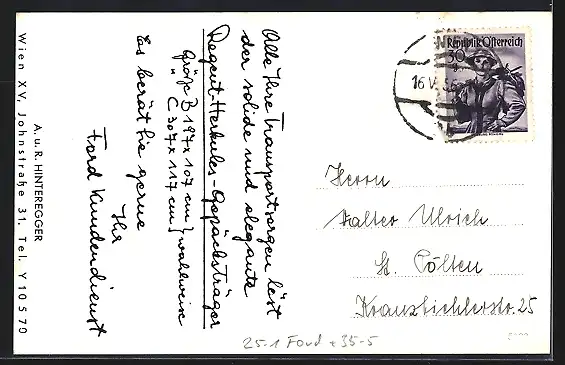 Alle Ihre Transportsorgen löst
der solide und elegante
Regent-Herkules-Gepäcksträger
Größe B 197 x 107 cm } wahlweise
" C 307 x 117 cm }
Es berät Sie gerne
Ihr
Ford Kundendienst
A. u. R. HINTEREGGER
Wien XV, Johnstraße 31, Tel. Y 10 5 70
Republik Österreich
30
16 V
Herrn
Walter Ulrich
St. Pölten
Kranzbichlerstr. 25
25-1 Ford +35-5